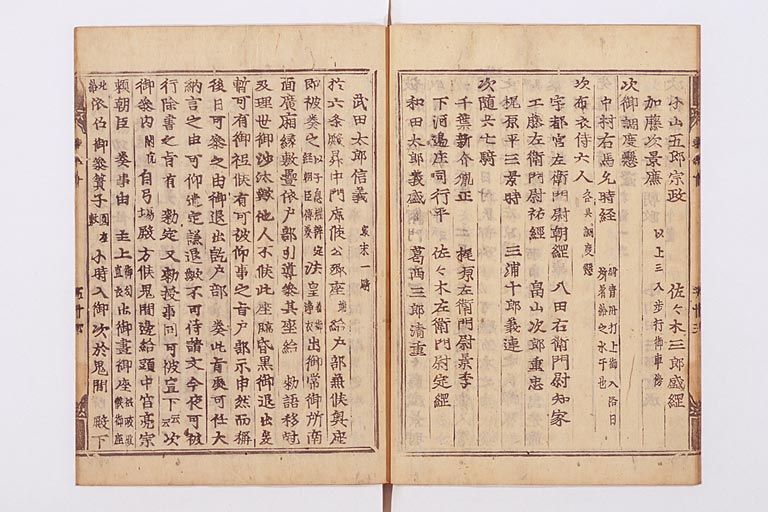 次小山五郎宗政　佐々木三郎盛經
加藤次景廉　以上三人歩行御車傍
次御調度懸
中村右馬允時経
次布衣侍六人　各具調度懸
宇都宮左衛門尉朝綱　八田右衛門尉知家
工藤左衛門尉祐經　畠山次郎重忠
梶原平三景時　三浦十郎義連
次随兵七騎
千葉新介胤正　梶原左衛門尉景季
下河邊庄司行平　佐々木左衛門尉定經
和田太郎義盛　葛西三郎清重
武田太郎信義　最末一騎
於六条殿昇中門廊候公卿座　給戸部兼候奥座
即被奏之　法皇　出御常御所南
面廣廂縁敷疊依戸部引導参其座給　勅語移尅
及理世御沙汰歟他人不候此座臨昏黒御退出
暫可有御祗候有可被仰事之旨戸部示申然而稱
後日可参之由退出訖戸部　奏此旨
納言之由可仰遣定謙退歟不可待請文今夜可被
行除書之旨有　勅定又勅授事同可被宣下云云次
御参内　自弓場殿方候鬼間邊給頭中宮亮宗
頼朝臣　奏事由　主上　出御晝御座
依召御参簀子　小時入御次於鬼間　殿下